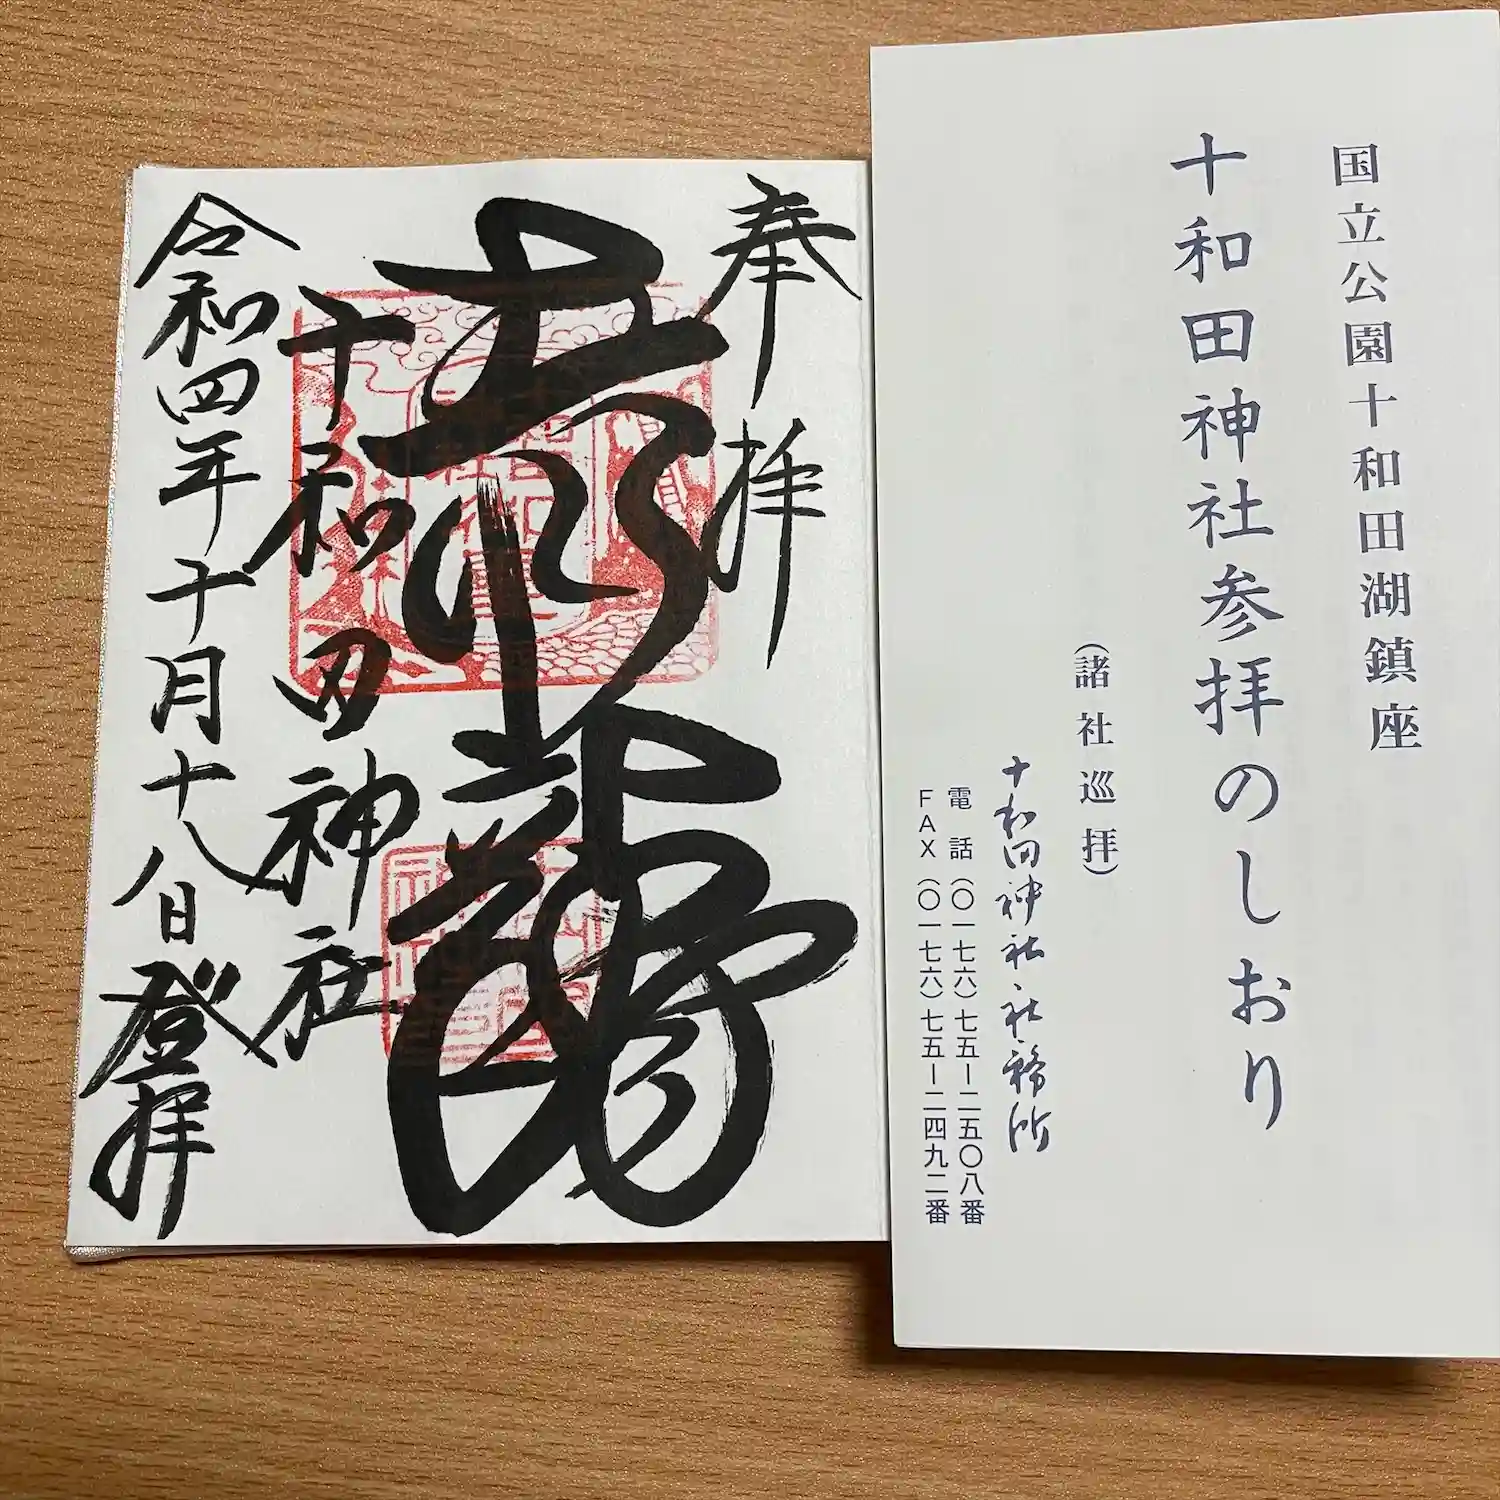 国立公園十和田湖鎮座
十和田神社参拝のしおり
(諸社巡拝)
十和田神社社務所
電話(〇一七六)七五ー二五〇八番
FAX(〇一七六)七五ー二四九二番
奉拝
青龍
十和田神社
令和四年十月十八日登拝